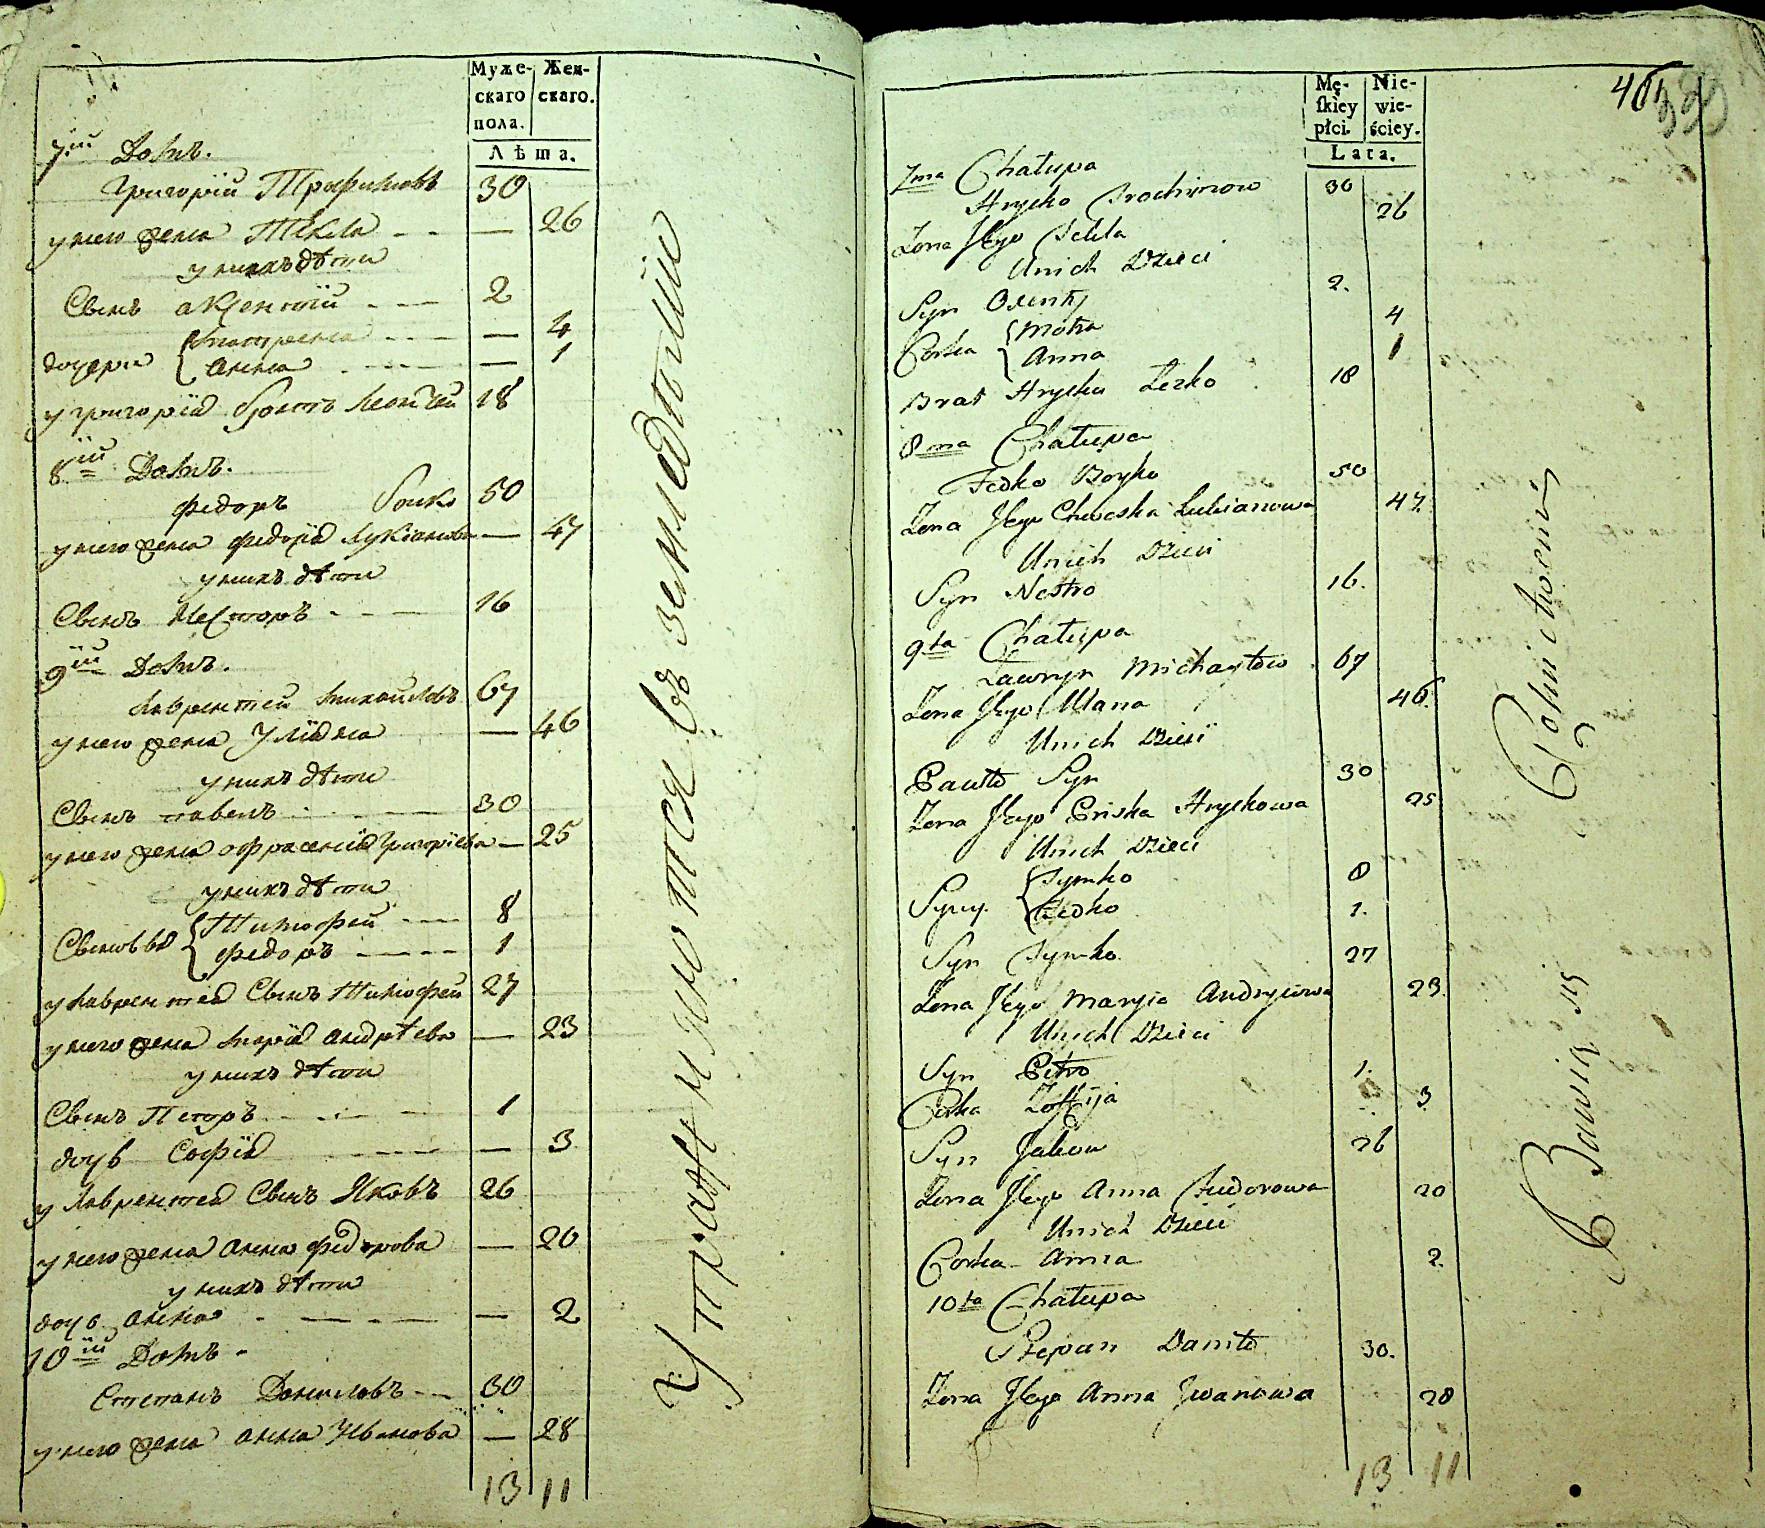 Муже-
скаго
пола.
Жен-
скаго.
Лѣта.
7ій Домъ.
Григорій Трофимовъ 30
у него жена Тёкла — 26
у нихъ дѣти
Сынъ Авксентій 2
дочери Матрена — 4
Анна — 1
у Григорія братъ Леонтей 18
8ій Домъ.
Федоръ Боико 50
у него жена Федосія Лукіанова — 47
у нихъ дѣти
Сынъ Несторъ 16
9ій Домъ.
Лаврентей Михаиловъ 67
у него жена Уліяна — 46
у нихъ дѣти
Сынъ павелъ 30
у него жена офрасенія Григоріева — 25
у нихъ дѣти
Сыновья Тимофей 8
Федоръ 1
у Лаврентея Сынъ Тимофей 27
у него жена Марія Андрѣева — 23
у нихъ дѣти
Сынъ Петръ 1
дочь Софія — 3
у Лаврентея Сынъ Яковъ 26
у него жена Анна Федорова — 20
у нихъ дѣти
дочь Анна — 2
10ій Домъ
Степанъ Даниловъ 30
у него жена Анна Иванова — 28
13 11
Упражняются въ земледѣліи
Mę-
skiey
płci.
Nie-
wie-
ściey.
Lata.
7ma Chałupa
Hryćko Trochimow 30
Zona Jego Tekla 26
Unich Dzieci
Syn 2.
Corka Motra 4
Anna 1
Brat Hryćka Lezko 18
8ma Chałupa
Fedko Boyko 50
Zona Jego Chweska Lukianowa 47.
Unich Dzieci
Syn Nestro 16.
9ta Chałupa
Lawryn Michayłow 67
Zona Jego Ulana 46.
Unich Dzieci
Pawło Syn 30
Zona Jego Priska Hryćkowa 25
Unich Dzieci
Syny Tymko 8
Fedko 1.
Syn Tymko 27
Zona Jego Maryia Andryiowa 23.
Unich Dzieci
Syn Petro 1.
Corka Zoffija 3
Syn Jakow 26
Zona Jego Anna Fiudorowa 20
Unich Dzieci
Corka Anna 2
10ta Chałupa
Stepan Daniło 30.
Zona Jego Anna Jwanowa 28
13 11
Bawią się Rolnictwem